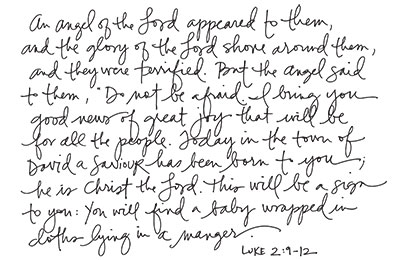 An angel of the Lord appeared to them,
and the glory of the Lord shone around them,
and they were terrified. But the angel said
to them, "Do not be afraid. I bring you
good news of great joy that will be
for all the people. Today in the town of
David a Saviour has been born to you;
he is Christ the Lord. This will be a sign
to you: You will find a baby wrapped in
cloths lying in a manger.
LUKE 2:9-12